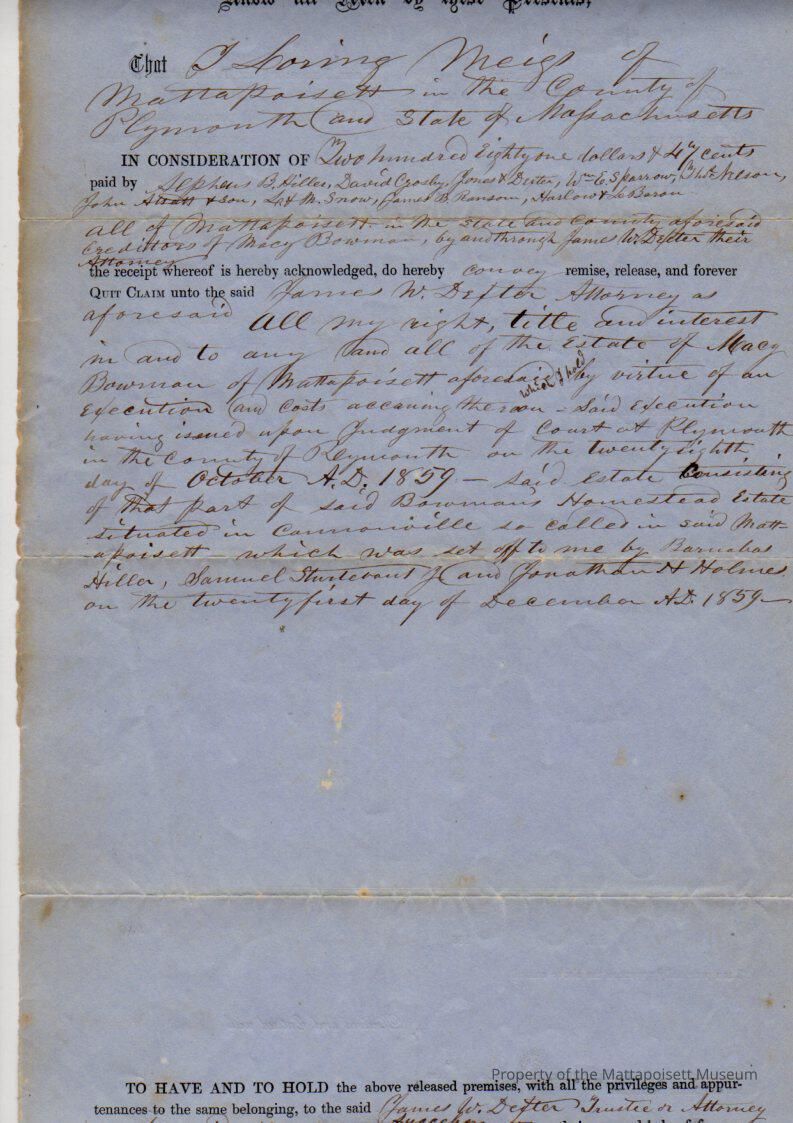 Know all Men by these Presents,
That I Loring Meigs of
Mattapoisett in the County of
Plymouth and State of Massachusetts
IN CONSIDERATION OF Two hundred Eighty one dollars & 47 cents
paid by Alpheus B. Hiller, David Crosby, Jones & Dexter, Wm E. Sparrow, Thos. Nelson,
John & son, L. & M. Snow, James B. Ransom, Harlow & LeBaron
all of Mattapoisett in the State and County aforesaid
Creditors of Macy Bowman, by and through James W. Dexter their
Attorney
the receipt whereof is hereby acknowledged, do hereby convey remise, release, and forever
QUIT CLAIM unto the said James W. Dexter Attorney as
aforesaid All my right, title and interest
in and to any and all of the Estate of Macy
Bowman of Mattapoisett aforesaid which I hold by virtue of an
Execution and Costs accruing thereon - Said Execution
having issued upon Judgment of Court at Plymouth
in the County of Plymouth on the twenty eighth
day of October A.D. 1859 — said estate Consisting
of that part of said Bowman's Homestead Estate
situated in Cannonville so called in said Matt-
apoisett which was set off to me by Barnabas
Hiller, Samuel Sturtevant Jr and Jonathan H Holmes
on the twenty first day of December A.D. 1859—
TO HAVE AND TO HOLD the above released premises, with all the privileges and appur-
tenances to the same belonging, to the said James W. Dexter Trustee or Attorney
Property of the Mattapoisett Museum